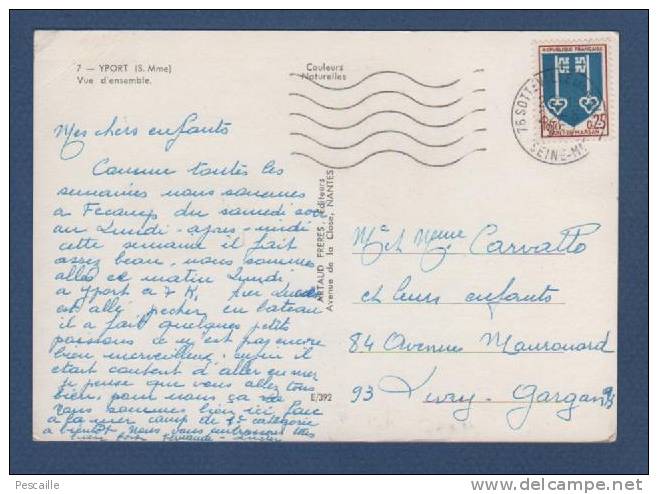 7 — YPORT (S. Mme)
Vue d'ensemble.
Couleurs
Naturelles
REPUBLIQUE FRANÇAISE
0,25
MONT-DE-MARSAN
76 SOTTE
SEINE-M
Mes chers enfants
Comme toutes les
semaines nous sommes
a Fecamp du samedi soir
au Lundi - apres - midi
cette semaine il fait
assez beau, nous sommes
allés ce matin Lundi
a Yport a 7 K,
est allé pecher en bateau
il a fait quelques petits
poissons ce n'est pas encore
bien merveilleux, enfin il
etait content d'aller en mer
je pense que vous allez tous
bien, pour nous ça va
nous sommes bien ici face
a la mer camp de 1e categorie
a bientot, nous vous embrassons tous
bien fort Fernande - Lucien
ARTAUD FRERES, Editeurs
Avenue de la Close, NANTES
E/392
Mr et Mme Carvatto
et leurs enfants
84 Avenue Maurouard
93 Livry - Gargan 93
Pescaille
www.delcampe.net